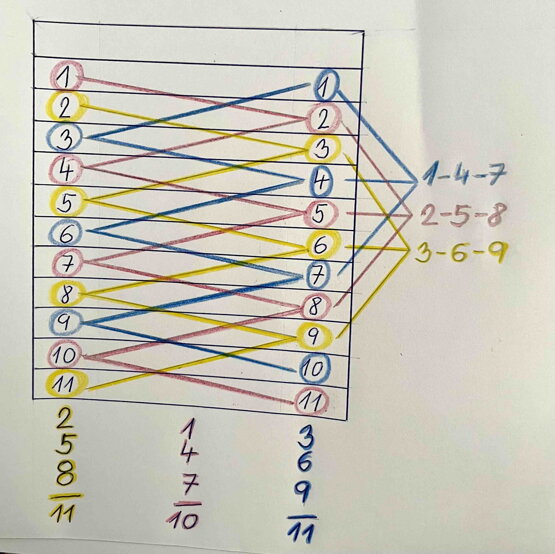 1 1
2 2
3 3
4 4
5 5
6 6
7 7
8 8
9 9
10 10
11 11
1-4-7
2-5-8
3-6-9
2
5
8
11
1
4
7
10
3
6
9
11